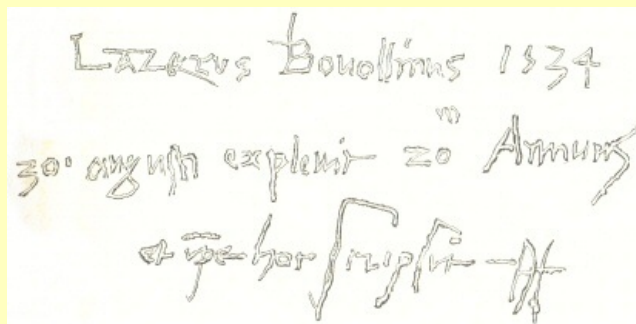 Lazarus Bouollinus 1534
30. augusti explenit 20m Annum
et ip̄e hoc scripsit